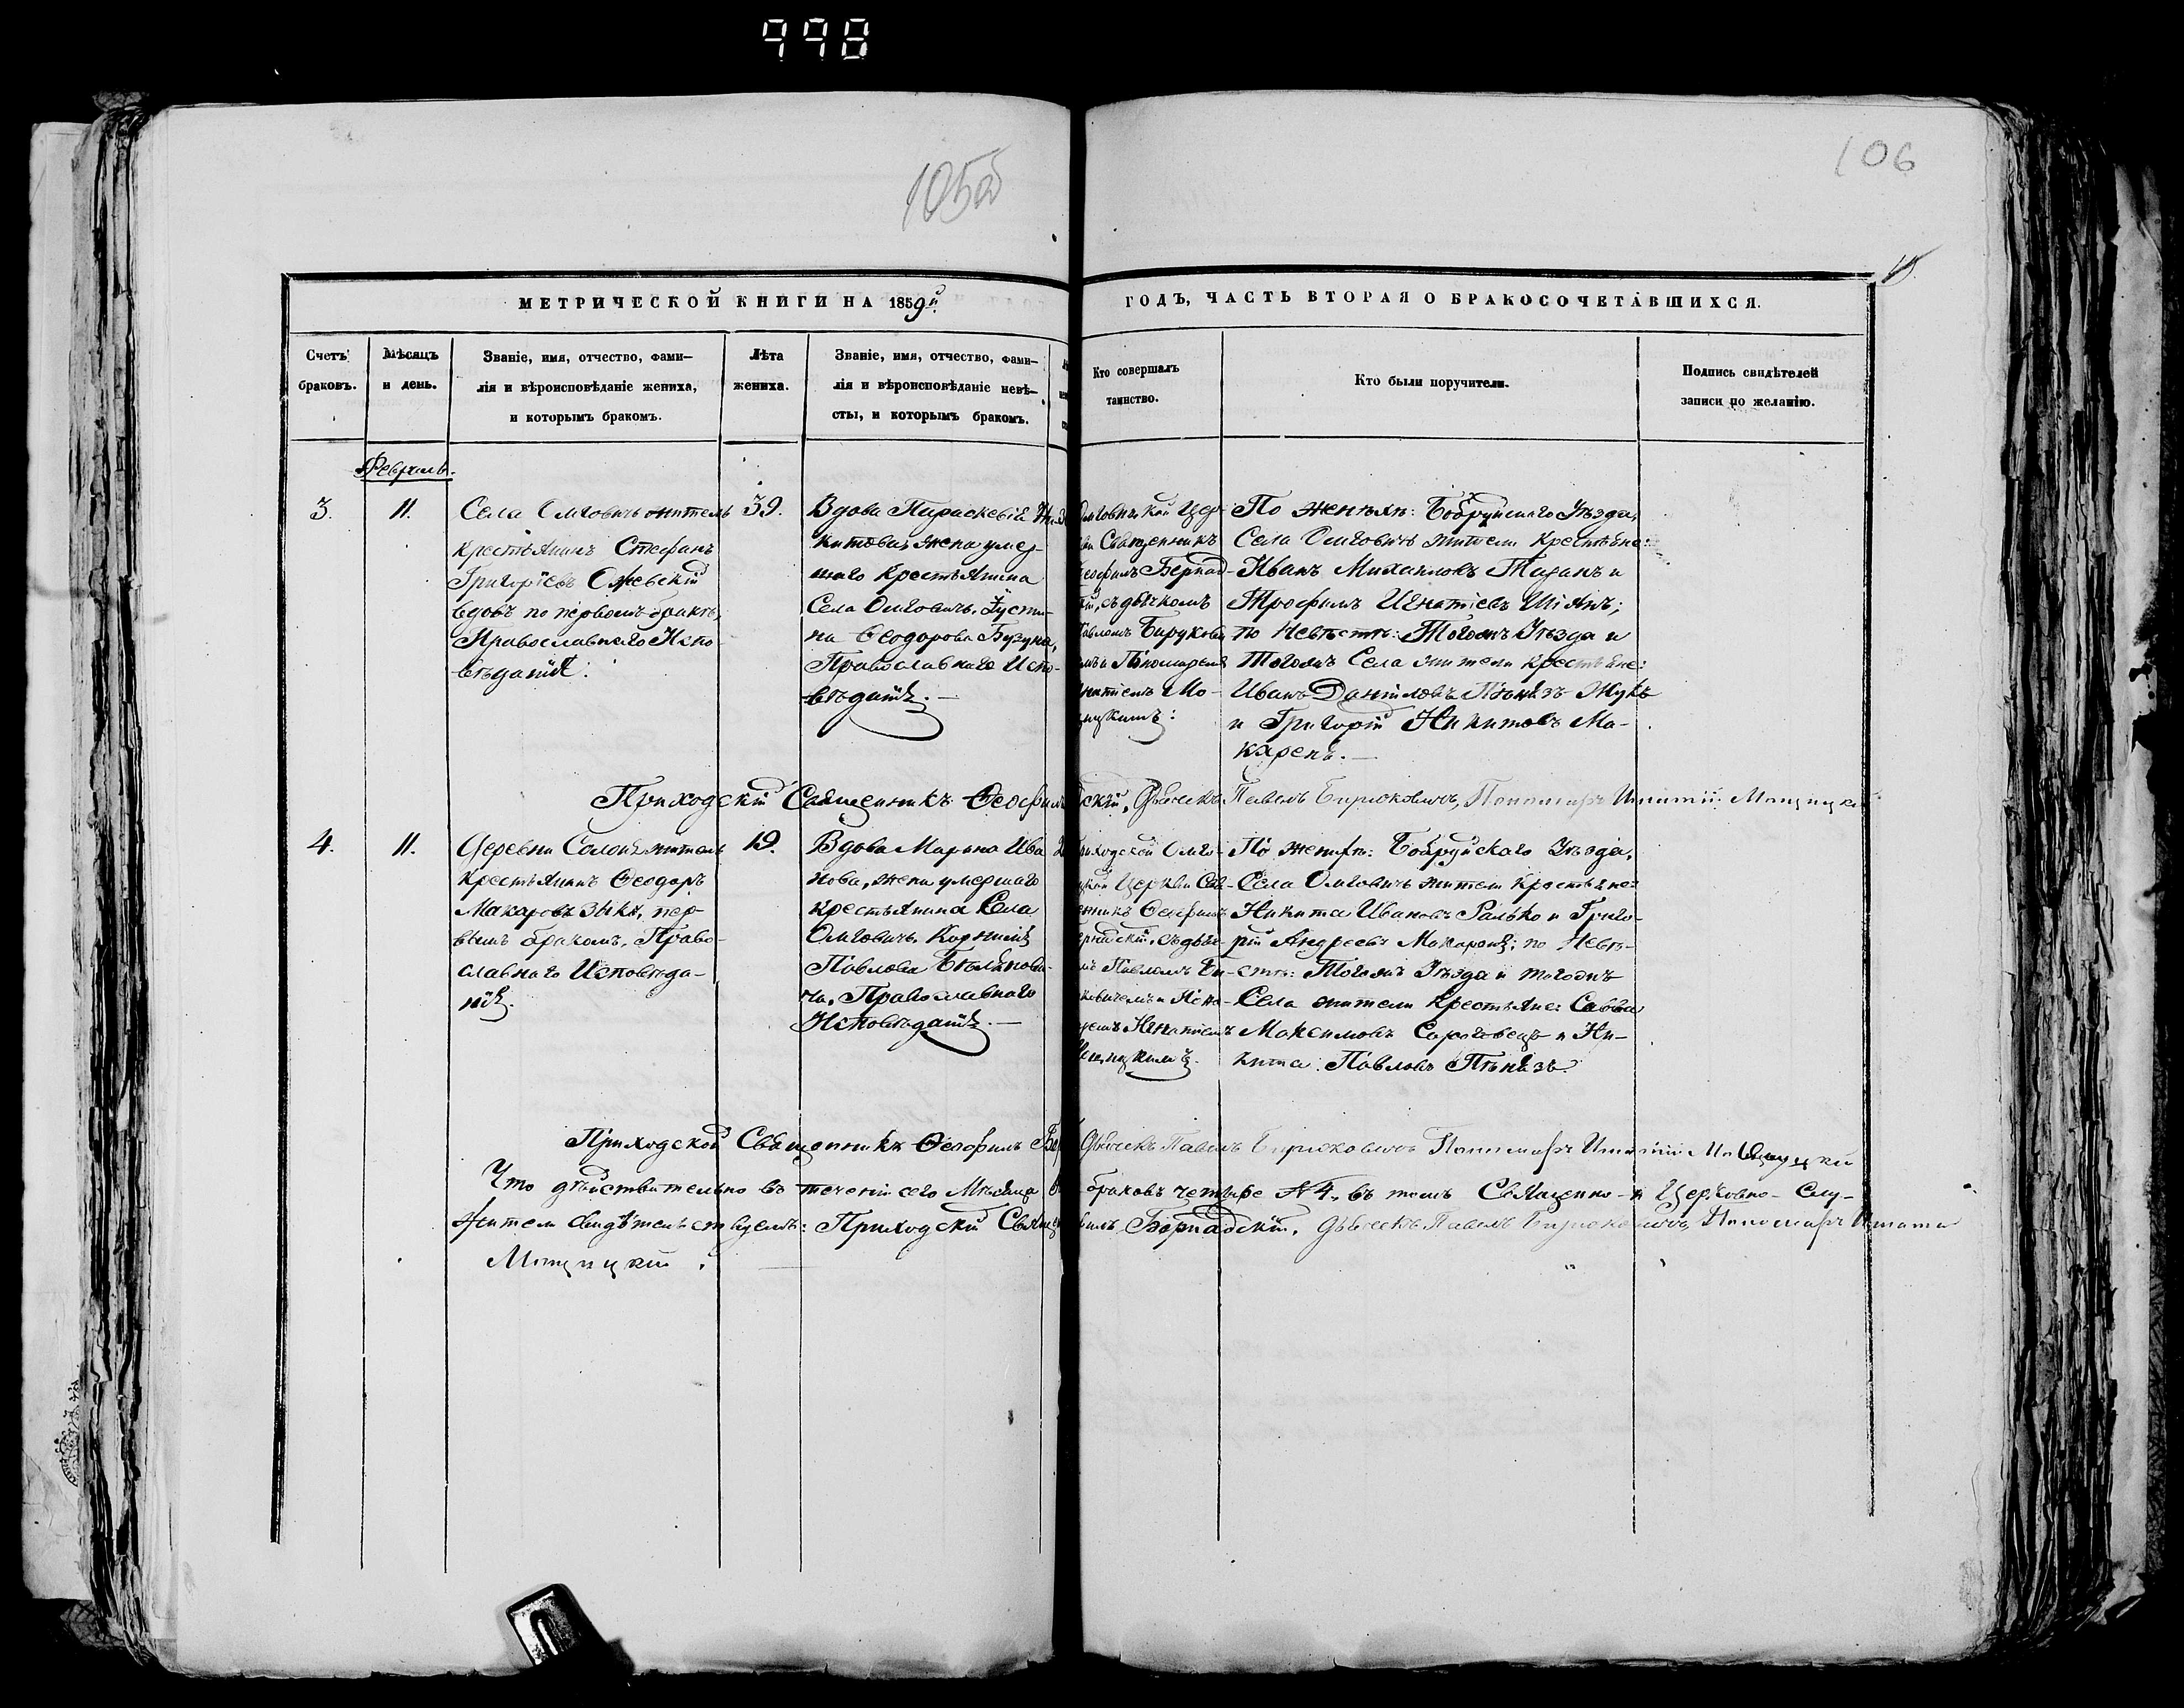 998
105об
106
МЕТРИЧЕСКОЙ КНИГИ НА 1859й
Счетъ браковъ.
Мѣсяцъ и день.
Званіе, имя, отчество, фами-
лія и вѣроисповѣданіе жениха,
и которымъ бракомъ.
Лѣта жениха.
Званіе, имя, отчество, фами-
лія и вѣроисповѣданіе невѣ-
сты, и которымъ бракомъ.
ГОДЪ, ЧАСТЬ ВТОРАЯ О БРАКОСОЧЕТАВШИХСЯ.
Кто совершалъ
таинство.
Кто были поручители.
Подпись свидѣтелей
записи по желанію.
Февраль.
3.
11.
Села Омговичъ житель
крестьянинъ Стефанъ
Григоріевъ
вдовъ по первомъ бракѣ,
Православнаго Испо-
вѣданія.
39.
Вдова Параскевія Ни-
китова, жена умер-
шаго крестьянина
Села Омговичъ, Іусти-
на Ѳеодорова Бузуна,
Православнаго Испо-
вѣданія.—
Омговицкой Цер-
Священникъ
Ѳеофилъ Бернад-
съ дьячкомъ
Павломъ Бирукови
и Пономаремъ
Игнатіемъ Мо-
щицкимъ:
По женихѣ: Бобруйскаго Уѣзда,
Села Омговичъ жители крестьяне:
Иванъ Михаиловъ Таранъ и
Трофимъ Игнатіевъ
по Невѣстѣ: Тогожъ Уѣзда и
Тогожъ Села жители крестьяне:
Иванъ Даніиловъ Пѣнязь Жукъ
и Григорій Никитовъ Ма-
карень.—
Приходскій Священникъ Ѳеофилъ
скій, Дьячекъ Павелъ Бирюковичъ, Пономарь Игнатій Мощицкій
4.
11.
Деревни житель
крестьянинъ Ѳеодоръ
Макаровъ Зыкъ, пер-
вымъ бракомъ, Право-
славнаго Исповѣда-
нія.
19.
Вдова Марьна Ива
нова, жена умершаго
крестьянина Села
Омговичъ, Корнилія
Павлова Бѣлянови-
ча, Православнаго
Исповѣданія.—
Приходской Омго-
Церкви Свя-
Ѳеофилъ
съ дья-
Павломъ Би-
и Поно-
Игнатіемъ
Мощицкимъ.
По женихѣ: Бобруйскаго Уѣзда,
Села Омговичъ жители крестьяне:
Никита Ивановъ Ралько и Григо-
рій Андреевъ по Невѣ-
стѣ: Тогожъ Уѣзда и тогожъ
Села жители крестьяне: Савва
Максимовъ и Ни-
кита Павловъ Пѣнязь
Приходской Священникъ Ѳеофилъ
Дьячекъ Павелъ Бирюковичъ Пономарь Игнатій Мощицкій
Что дѣйствительно въ теченіи сего Мѣсяца
браковъ четыре №4, въ томъ Священно- и Церковно- Слу-
жители свидѣтельствуемъ: Приходскій
Бернадскій, Дьячекъ Павелъ Бирюковичъ, Пономарь Игнатій
Мощицкій